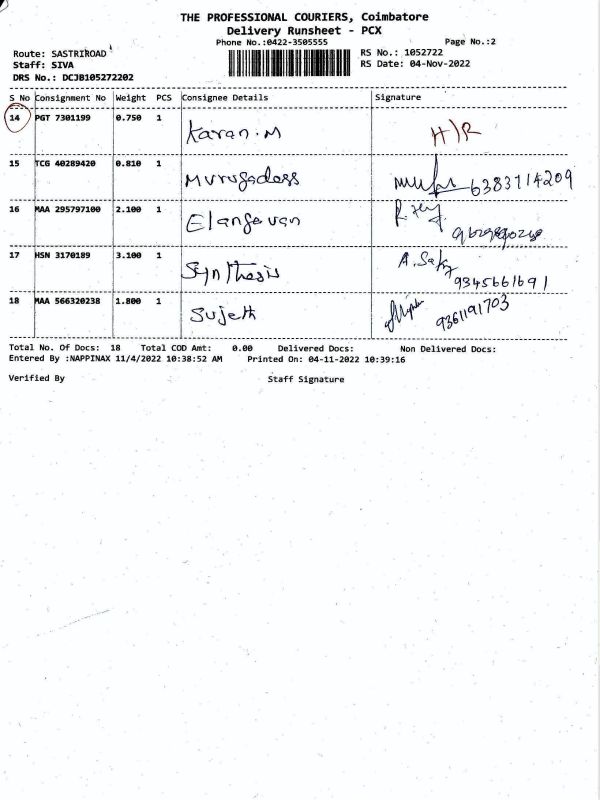 THE PROFESSIONAL COURIERS, Coimbatore
Delivery Runsheet - PCX
Phone No.:0422-3505555 Page No.:2
Route: SASTRIROAD RS No.: 1052722
Staff: SIVA RS Date: 04-Nov-2022
DRS No.: DCJB105272202
S No Consignment No Weight PCS Consignee Details Signature
14 PGT 7301199 0.750 1 Karan.M H)R
15 TCG 40289420 0.810 1 Murugadoss 6383714209
16 MAA 295797100 2.100 1 Elangovan
17 HSN 3170189 3.100 1 Synthesis 9345661691
18 MAA 566320238 1.800 1 Sujeth 9361191703
Total No. Of Docs: 18 Total COD Amt: 0.00 Delivered Docs: Non Delivered Docs:
Entered By :NAPPINAX 11/4/2022 10:38:52 AM Printed On: 04-11-2022 10:39:16
Verified By Staff Signature